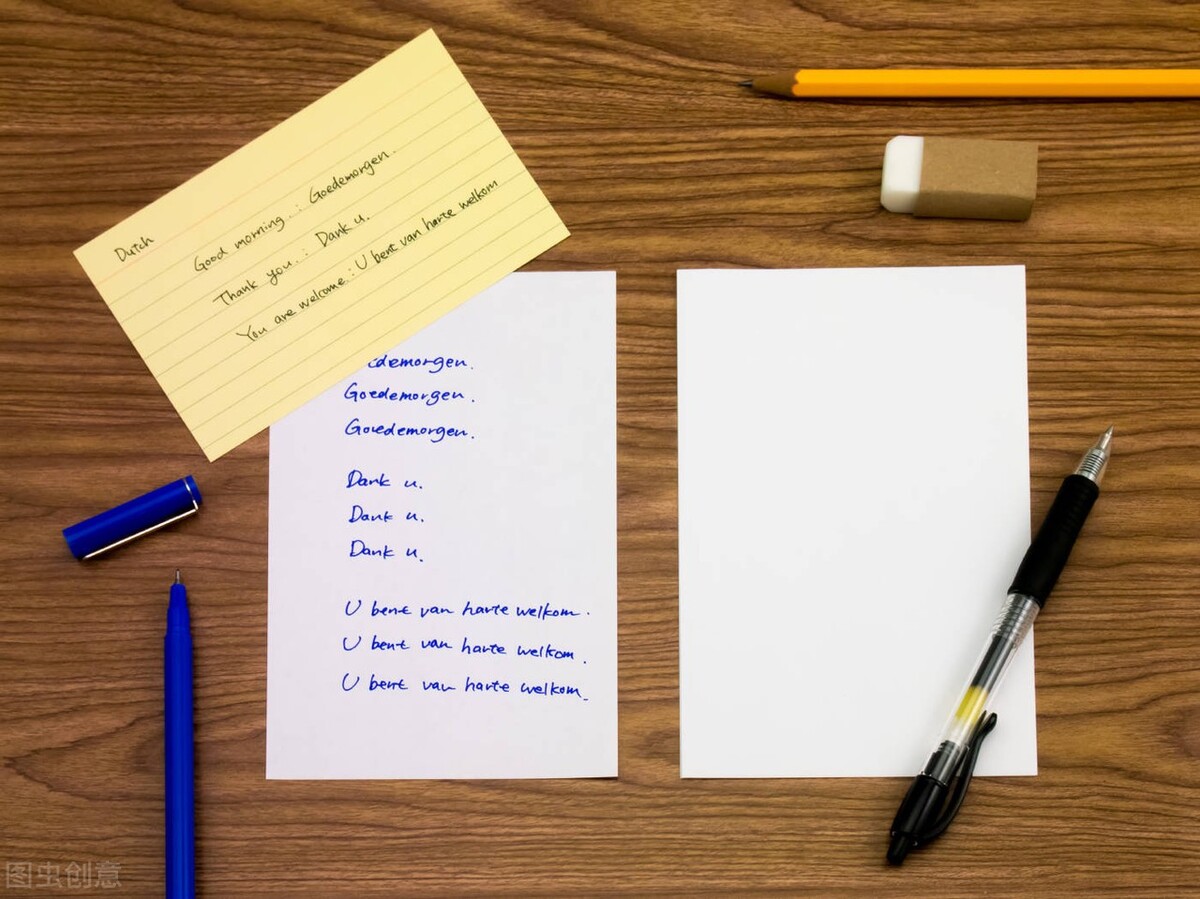 Dutch
Good morning. : Goedemorgen.
Thank you. : Dank u.
You are welcome. : U bent van harte welkom
Goedemorgen.
Goedemorgen.
Dank u.
Dank u.
Dank u.
U bent van harte welkom.
U bent van harte welkom.
U bent van harte welkom.
图虫创意